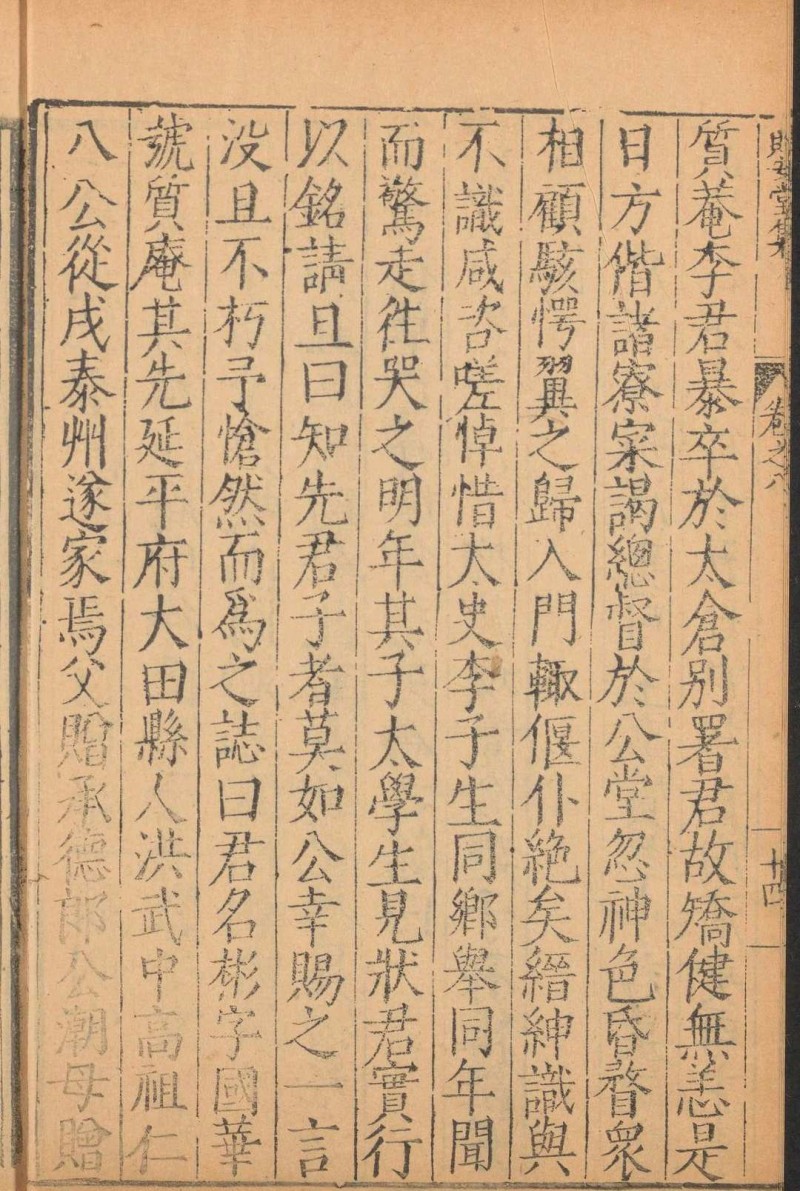 貽安堂集
卷之八
十四
質菴李君暴卒於太倉別署君故矯健無恙是
日方偕諸寮寀謁總督於公堂忽神色昏瞀衆
相顧駭愕翼之歸入門輙偃仆絶矣縉紳識與
不識咸咨嗟悼惜太史李子生同鄉舉同年聞
而驚走徃哭之明年其子太學生見狀君實行
以銘請且曰知先君子者莫如公幸賜之一言
没且不朽予愴然而爲之誌曰君名彬字國華
號質庵其先延平府大田縣人洪武中高祖仁
八公從戌泰州遂家焉父贈承德郎公潮母贈